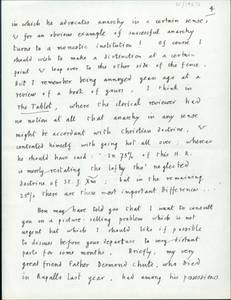 4
in which he advocates anarchy in a certain sense,
& for an obvious example of successful anarchy
turns to a monastic institution! Of course I
should wish to make a distinction at a certain
point & leap over to the other side of the fence.
But I remember being annoyed years ago at a
review of a book of yours, I think in
The Tablet, where the clerical reviewer had
no notion at all that anarchy in any sense
might be accordant with Christian doctrine, &
contented himself with going hot all over: whereas
he should have said: "In 75% of this H.R. is
merely restating the lofty tho' neglected
doctrine of St. J. had in the remaining
25% there are these most important differences ..."
Ben may have told you that I want to consult
you on a picture-selling problem which is not
urgent but which I should like if possible
to discuss before your departure to very distant
parts for some months. Briefly, my very
great friend Father Desmond Chute, who died
in Rapallo last year, had among his possessions